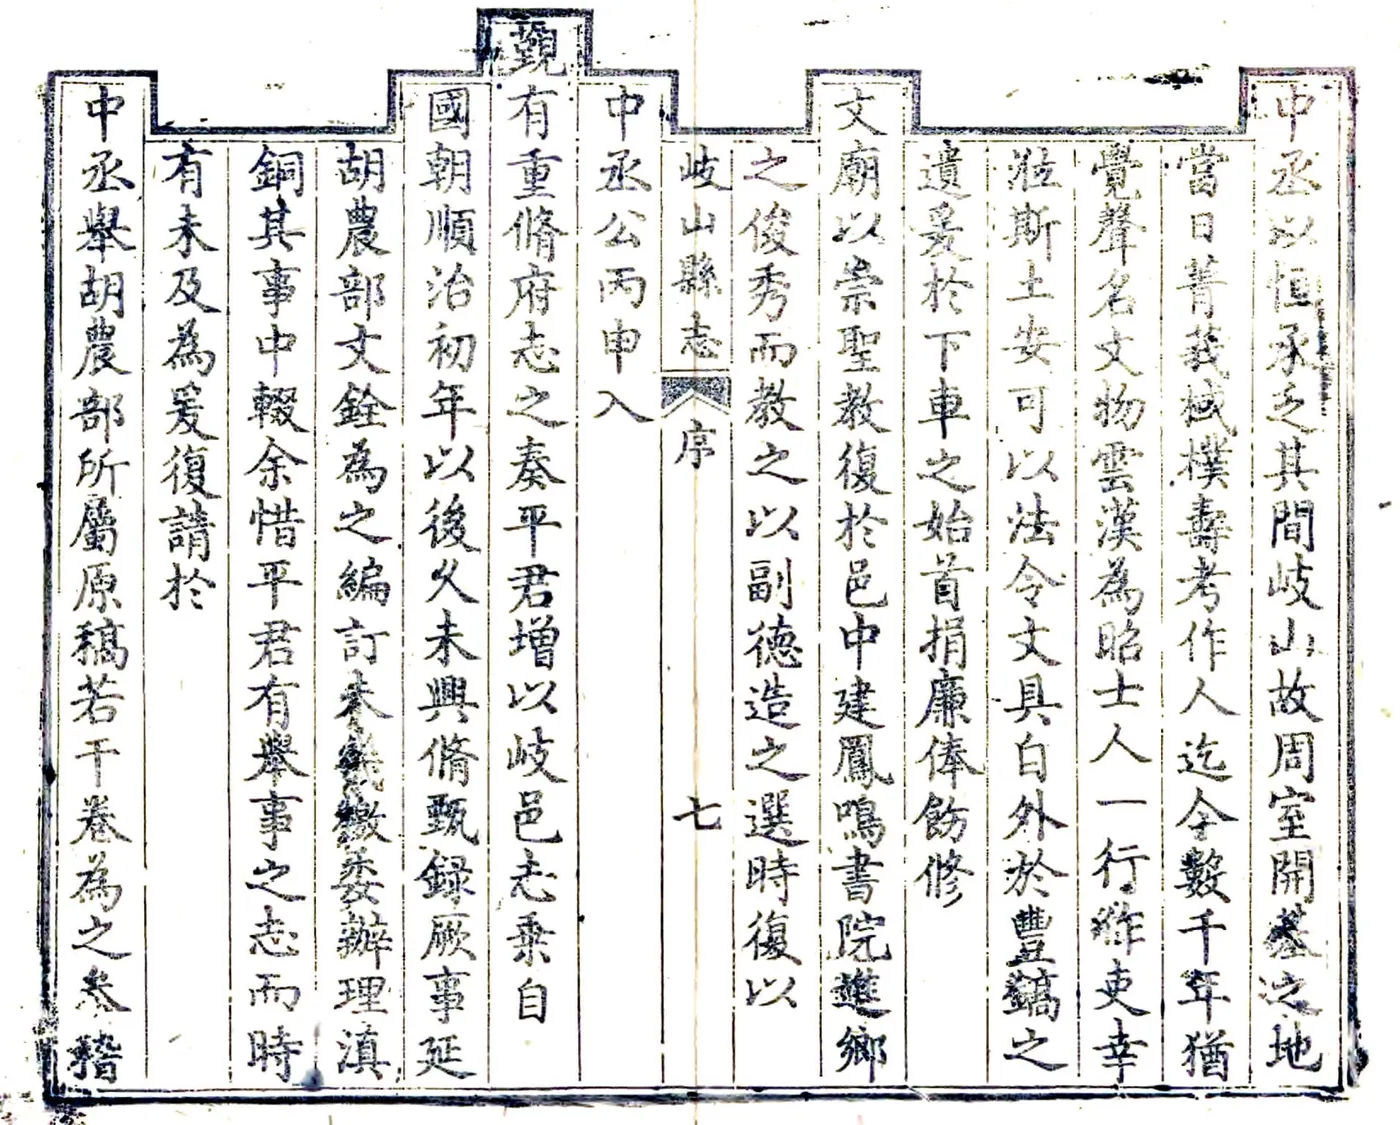 中丞以恒承乏其間岐山故周室開基之地
當日菁莪棫樸壽考作人迄今數千年猶
覺聲名文物雲漢為昭士人一行作吏幸
涖斯土安可以法令文具自外於豐鎬之
遺爰於下車之始首捐廉俸飭修
文廟以崇聖教復於邑中建鳳鳴書院進鄉
之俊秀而教之以副德造之選時復以
岐山縣志 序 七
中丞公丙申入
覲有重脩府志之奏平君增以岐邑志乗自
國朝順治初年以後久未興脩甄録厥事延
胡農部文銓為之編訂未幾檄委辦理滇
銅其事中輟余惜平君有舉事之志而時
有未及為爰復請於
中丞舉胡農部所屬原稿若干卷為之叅稽